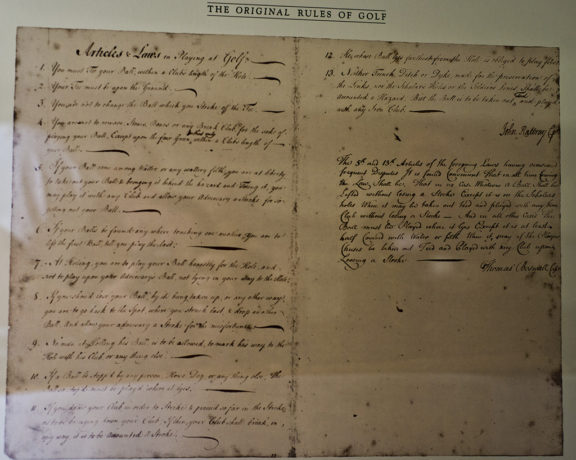 THE ORIGINAL RULES OF GOLF
Articles & Laws in Playing at Golf.
1. You must Tee your Ball, within a Clubs length of the Hole.
2. Your Tee must be upon the Ground.
3. You are not to change the Ball which you Stroke off the Tee.
4. You are not to remove Stones, Bones or any Break Club, for the sake of
playing your Ball, Except upon the fair Green, within a Clubs length of
your Ball.
5. If your Ball come among Watter or any wattery filth, you are at liberty
to take out your Ball & bringing it behind the hazard and Teeing it, you
may play it with any Club and allow your Adversary a Stroke for so
getting out your Ball.
6. If your Balls be found any where touching one another, You are to
lift the first Ball, till you play the last.
7. At Holing, you are to play your Ball honestly for the Hole, and
not to play upon your Adversarys Ball, not lying in your way to the Hole.
8. If you should lose your Ball, by its being taken up, or any other way,
you are to go back to the Spot, where you struck last & drop another
Ball. And allow your adversary a Stroke for the misfortune.
9. No man at Holing his Ball is to be allowed, to mark his way to the
Hole with his Club or any thing else.
10. If a Ball be stopp'd by any person, Horse, Dog, or any thing else, The
Ball so stop'd must be play'd where it lyes.
11. If you draw your Club in order to Stroke & proceed so far in the Stroke
as to be bringing down your Club. If then, your Club shall break, in
any way, it is to be accounted a Stroke.
12. He whose Ball lyes farthest from the Hole is obliged to play first.
13. Neither Trench, Ditch or Dyke, made for the preservation of
the Links, nor the Scholars Holes or the Soldiers Lines, Shall be
accounted a Hazard. But the Ball is to be taken out Teed and play'd
with any Iron Club.
John Rattray Cpt
The 5th and 13th Articles of the foregoing Laws having occasioned
frequent Disputes It is found Convenient That in all time Coming
the Law Shall be, That in no Case Whatever a Ball Shall be
Lifted without losing a Stroke Except it is in the Scholars
holes When it may be taken out Teed and played with any Iron
Club without losing a Stroke — And in all other Cases The
Ball must be Played where it lyes Except it is at least
half Covered with Water or filth When it may if the Player
Chuses be taken out Teed and Played with any Club upon
Loosing a Stroke
Thomas Boswall Capt